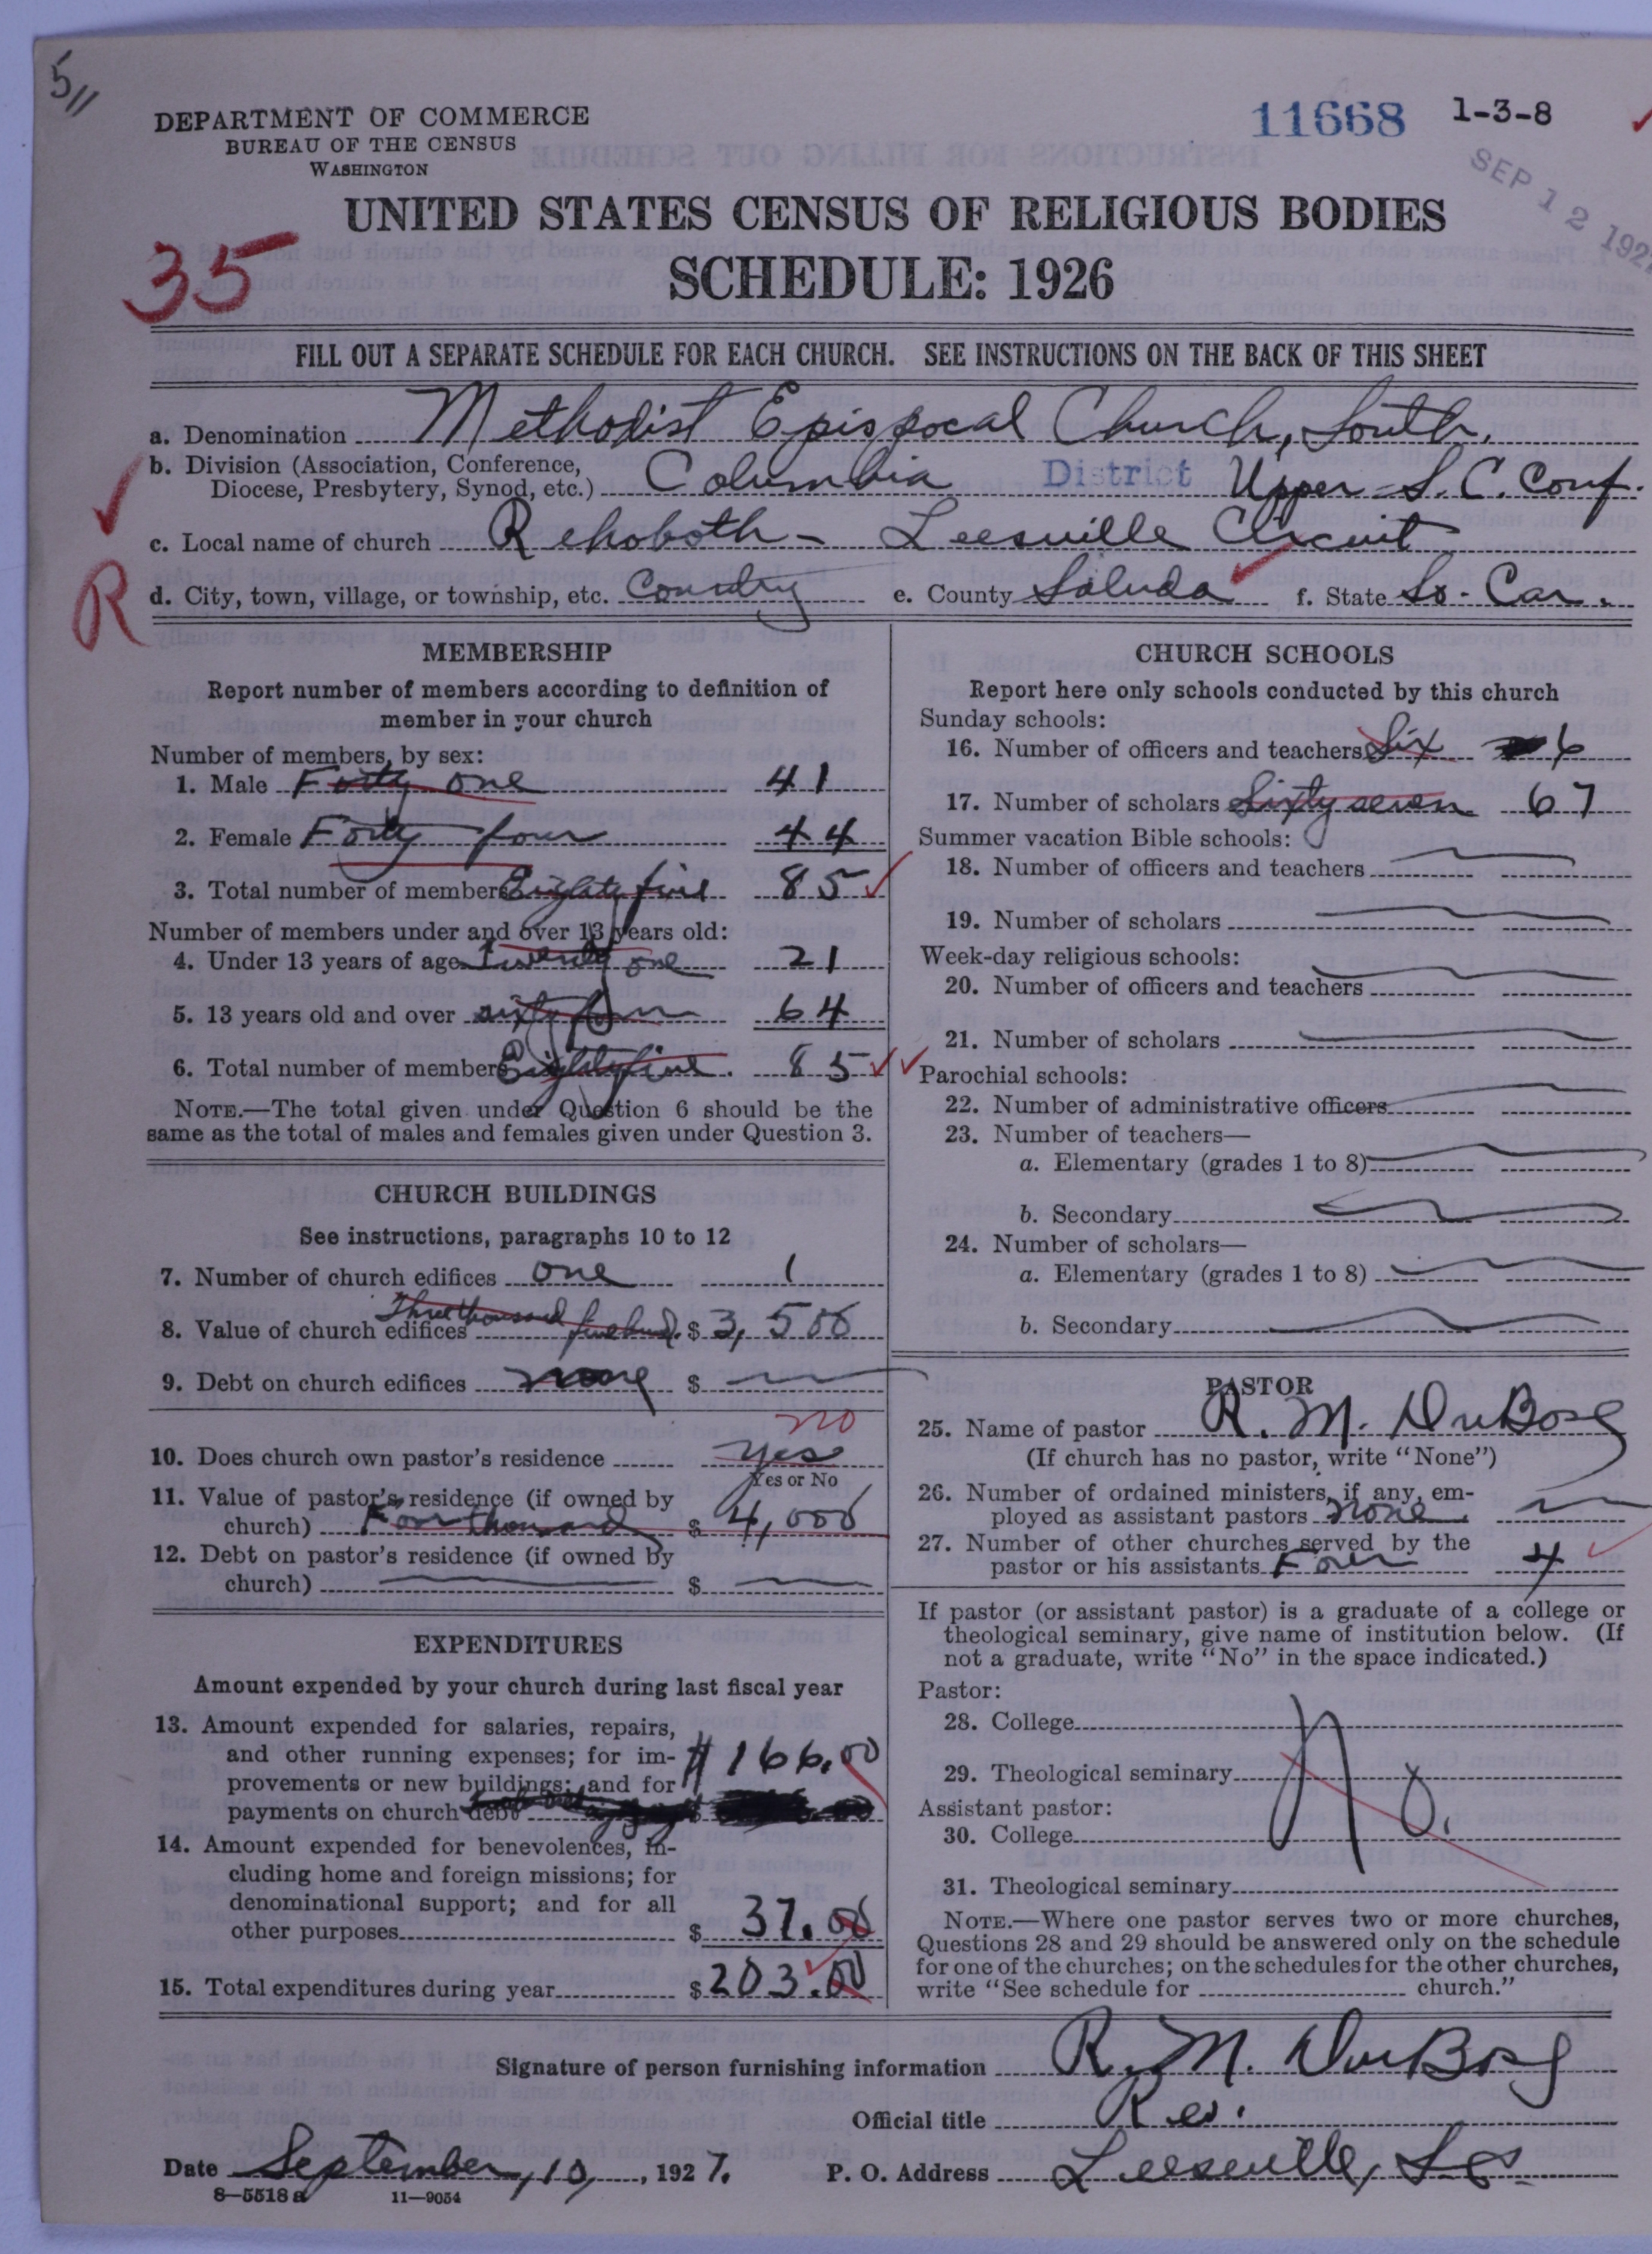 5
11668 1-3-8
DEPARTMENT OF COMMERCE
BUREAU OF THE CENSUS
WASHINGTON
SEP 12 192
UNITED STATES CENSUS OF RELIGIOUS BODIES
35
SCHEDULE: 1926
FILL OUT A SEPARATE SCHEDULE FOR EACH CHURCH. SEE INSTRUCTIONS ON THE BACK OF THIS SHEET
a. Denomination Methodist Epispocal Church, South.
b. Division (Association, Conference,
Diocese, Presbytery, Synod, etc.) Columbia District Upper-S.C. Conf.
c. Local name of church Rehoboth- Leesville Circuit
R
d. City, town, village, or township, etc. Country e. County Saluda f. State So. Car.
MEMBERSHIP
Report number of members according to definition of
member in your church
Number of members, by sex:
1. Male Forty one 41
2. Female Forty four 44
3. Total number of members Eighty five 85
Number of members under and over 13 years old:
4. Under 13 years of age Twenty one 21
5. 13 years old and over sixty four 64
6. Total number of members Eighty five. 85
NOTE.—The total given under Question 6 should be the
same as the total of males and females given under Question 3.
CHURCH BUILDINGS
See instructions, paragraphs 10 to 12
7. Number of church edifices one 1
8. Value of church edifices Three thousand five hund. $ 3,500
9. Debt on church edifices none $
no
10. Does church own pastor's residence yes
Yes or No
11. Value of pastor's residence (if owned by
church) Four thousand $ 4,000
12. Debt on pastor's residence (if owned by
church) $
EXPENDITURES
Amount expended by your church during last fiscal year
13. Amount expended for salaries, repairs,
and other running expenses; for im-
provements or new buildings; and for
payments on church debt $166.00
14. Amount expended for benevolences, in-
cluding home and foreign missions; for
denominational support; and for all
other purposes $ 37.00
15. Total expenditures during year $203.00
CHURCH SCHOOLS
Report here only schools conducted by this church
Sunday schools:
16. Number of officers and teachers Six 6
17. Number of scholars Sixty seven 67
Summer vacation Bible schools:
18. Number of officers and teachers
19. Number of scholars
Week-day religious schools:
20. Number of officers and teachers
21. Number of scholars
Parochial schools:
22. Number of administrative officers
23. Number of teachers—
a. Elementary (grades 1 to 8)
b. Secondary
24. Number of scholars—
a. Elementary (grades 1 to 8)
b. Secondary
PASTOR
25. Name of pastor R. M. DuBose
(If church has no pastor, write "None")
26. Number of ordained ministers, if any, em-
ployed as assistant pastors none.
27. Number of other churches served by the
pastor or his assistants Four 4
If pastor (or assistant pastor) is a graduate of a college or
theological seminary, give name of institution below. (If
not a graduate, write "No" in the space indicated.)
Pastor:
28. College
29. Theological seminary
No.
Assistant pastor:
30. College
31. Theological seminary
NOTE.—Where one pastor serves two or more churches,
Questions 28 and 29 should be answered only on the schedule
for one of the churches; on the schedules for the other churches,
write "See schedule for church."
Signature of person furnishing information R. M. DuBose
Official title Rev.
Date September, 10, 1927. P. O. Address Leesville, S.C.
8—5518 a 11—9054